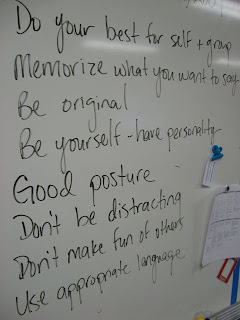 Do your best for self + group
Memorize what you want to say
Be original
Be yourself - have personality
Good posture
Don't be distracting
Don't make fun of others
Use appropriate language